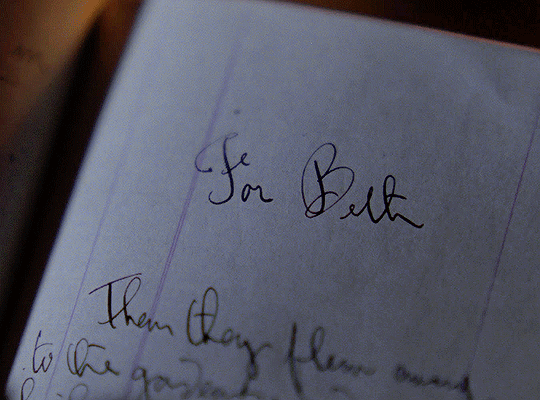 For Beth
Then they flew away
to the garden